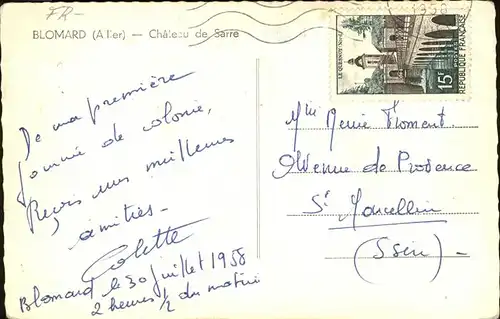 FR-
BLOMARD (Allier) — Château de Sarre
1958
LE QUESNOY NORD
15F
REPUBLIQUE FRANÇAISE
De ma première
journée de colonie,
Reçois mes meilleures
amitiés-
Colette
Blomard le 30 juillet 1958
2 heures 1/2 du matin
Mlle Renée Froment
Avenue de Provence
St Marcellin
(Isère) -